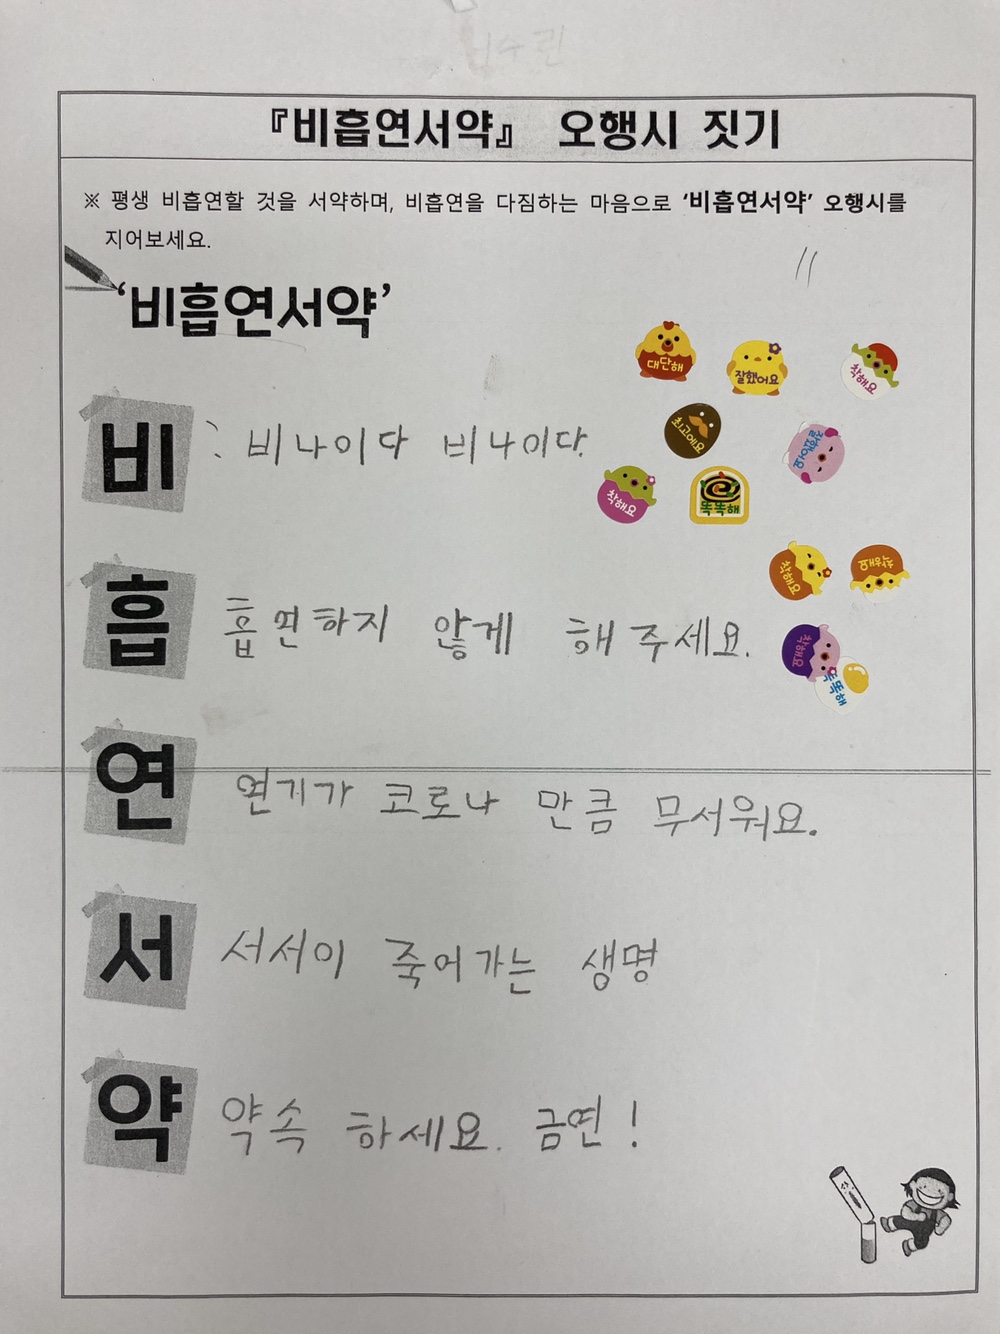 『비흡연서약』 오행시 짓기
※ 평생 비흡연할 것을 서약하며, 비흡연을 다짐하는 마음으로 ‘비흡연서약’ 오행시를
지어보세요.
‘비흡연서약’
11
대단해
잘했어요
착해요
최고예요
잘했어요
착해요
똑똑해
비 : 비나이다 비나이다.
착해요
착해요
착해요
똑똑해
흡 흡연하지 않게 해 주세요.
연 연기가 코로나 만큼 무서워요.
서 서서이 죽어가는 생명
약 약속 하세요. 금연!